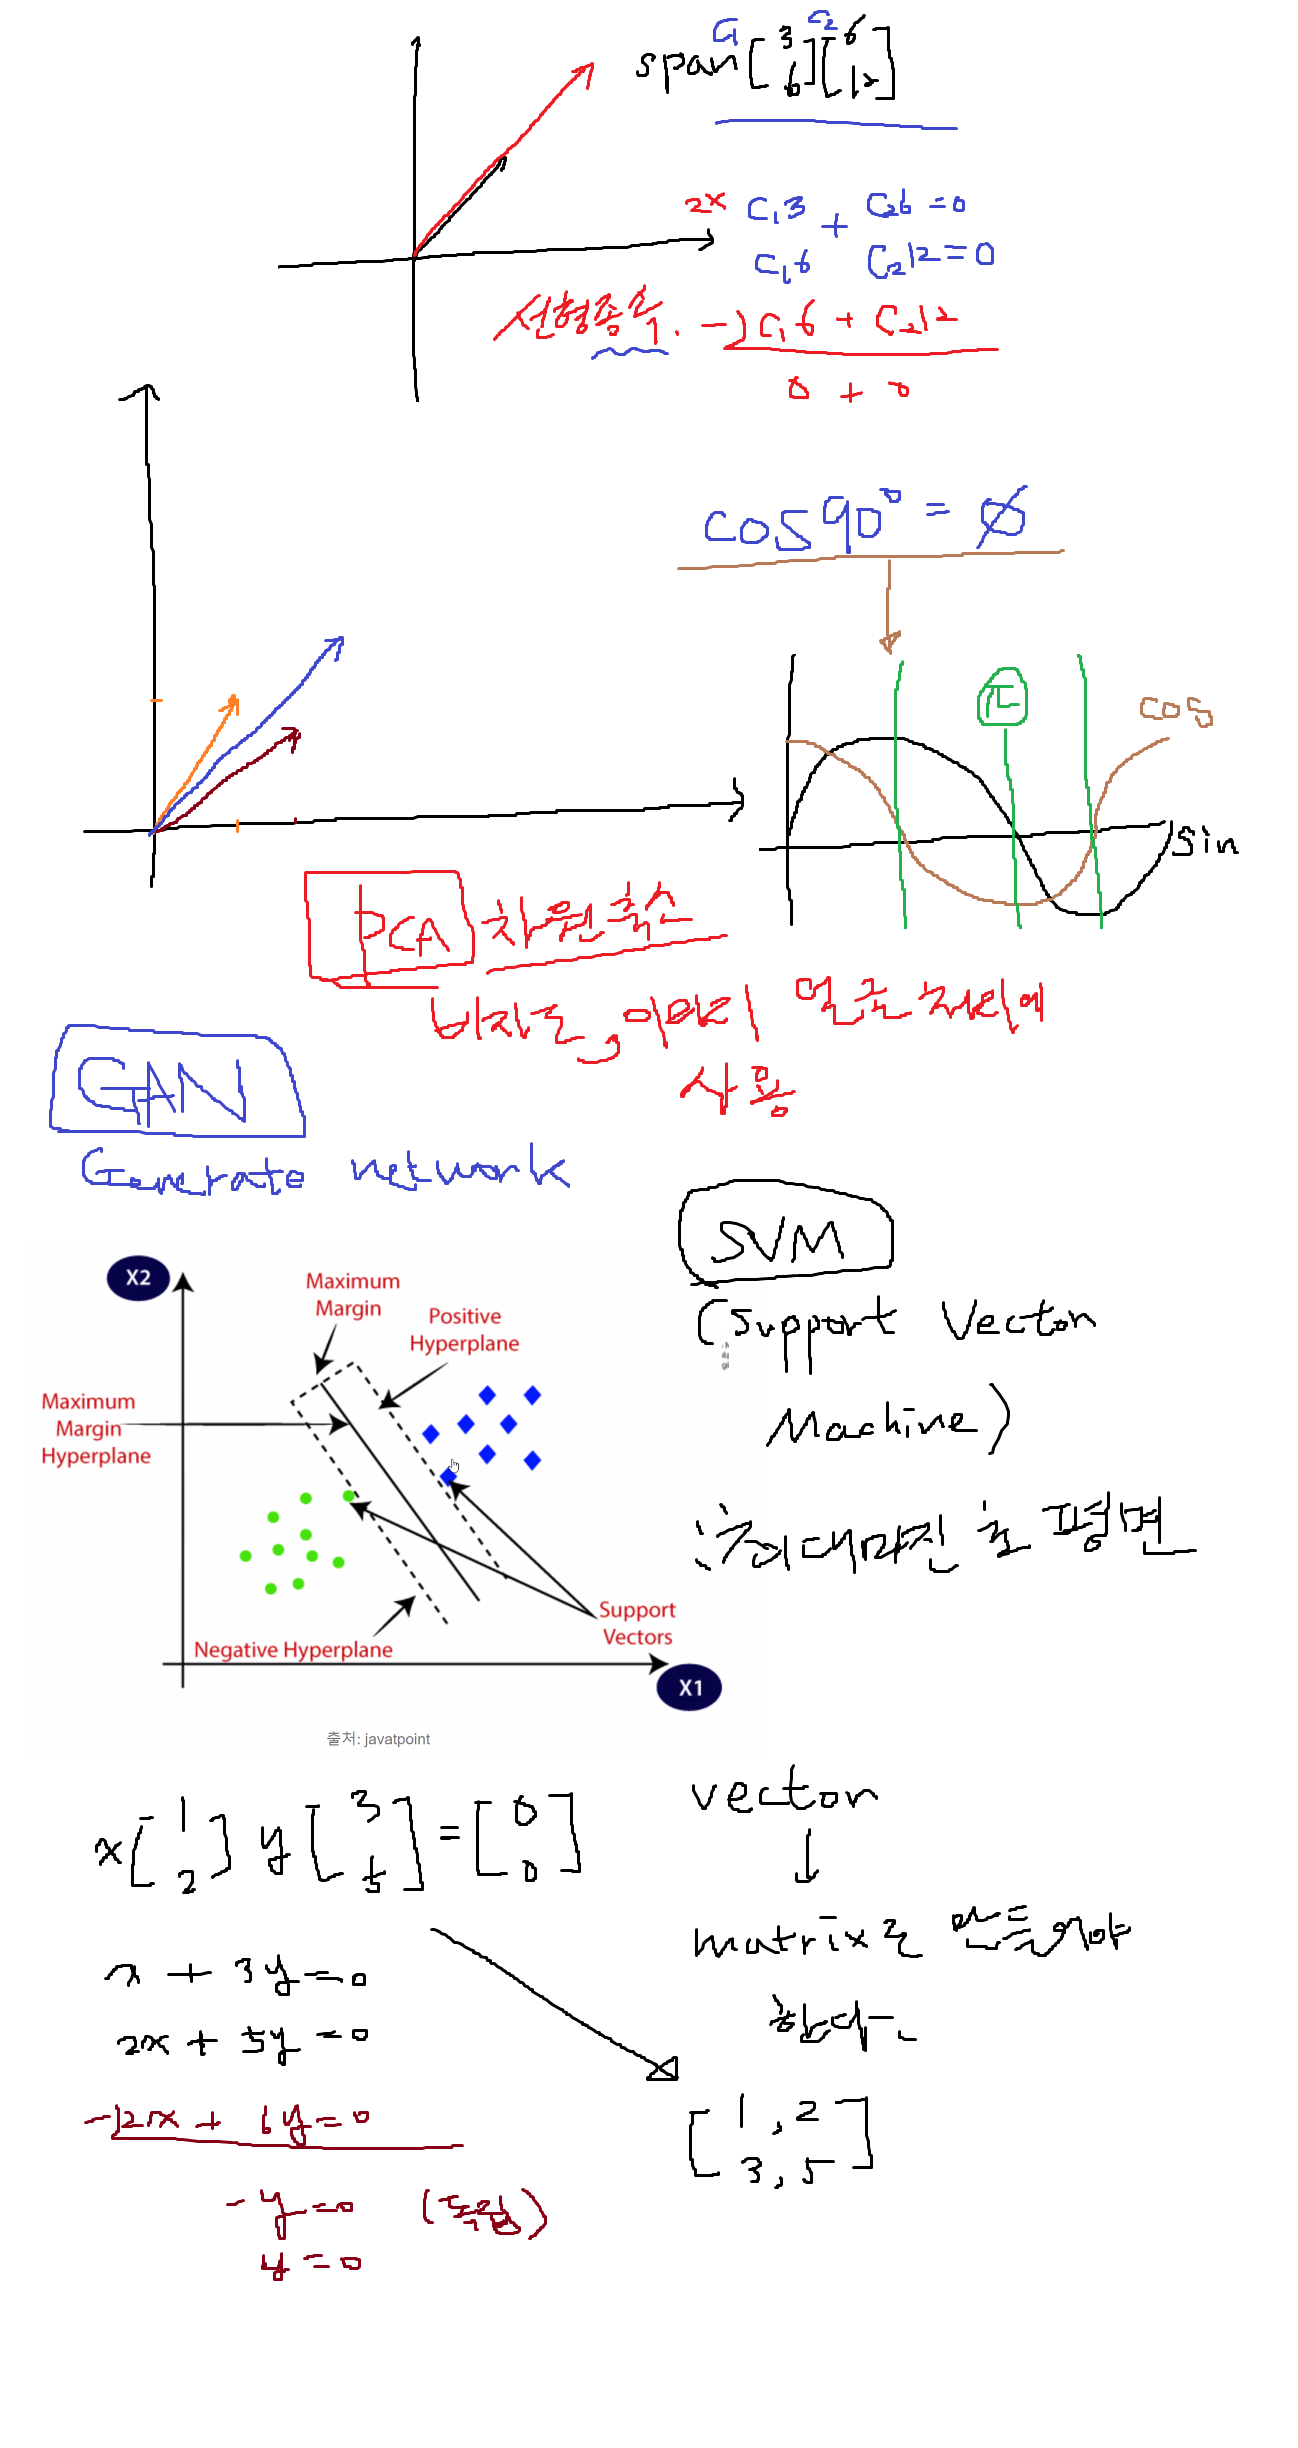 C₁ C₂
span [3 6] [6 12]
2x C₁3 + C₂6 = 0
C₁6 C₂12 = 0
선형종속. -) C₁6 + C₂12
0 + 0
cos90° = 0
π
cos
sin
PCA 차원축소
비지도, 이미지 얼굴처리에
사용
GAN
Generate network
SVM
(Support Vector
Machine)
최대마진 초평면
X2
Maximum
Margin
Positive
Hyperplane
Maximum
Margin
Hyperplane
Support
Vectors
Negative Hyperplane
X1
출처: javatpoint
x[1 2] y[3 5] = [0 0]
x + 3y = 0
2x + 5y = 0
-)2x + 6y = 0
-y = 0 (독립)
y = 0
vector
↓
matrix로 만들어야
한다.
[1, 2
3, 5]